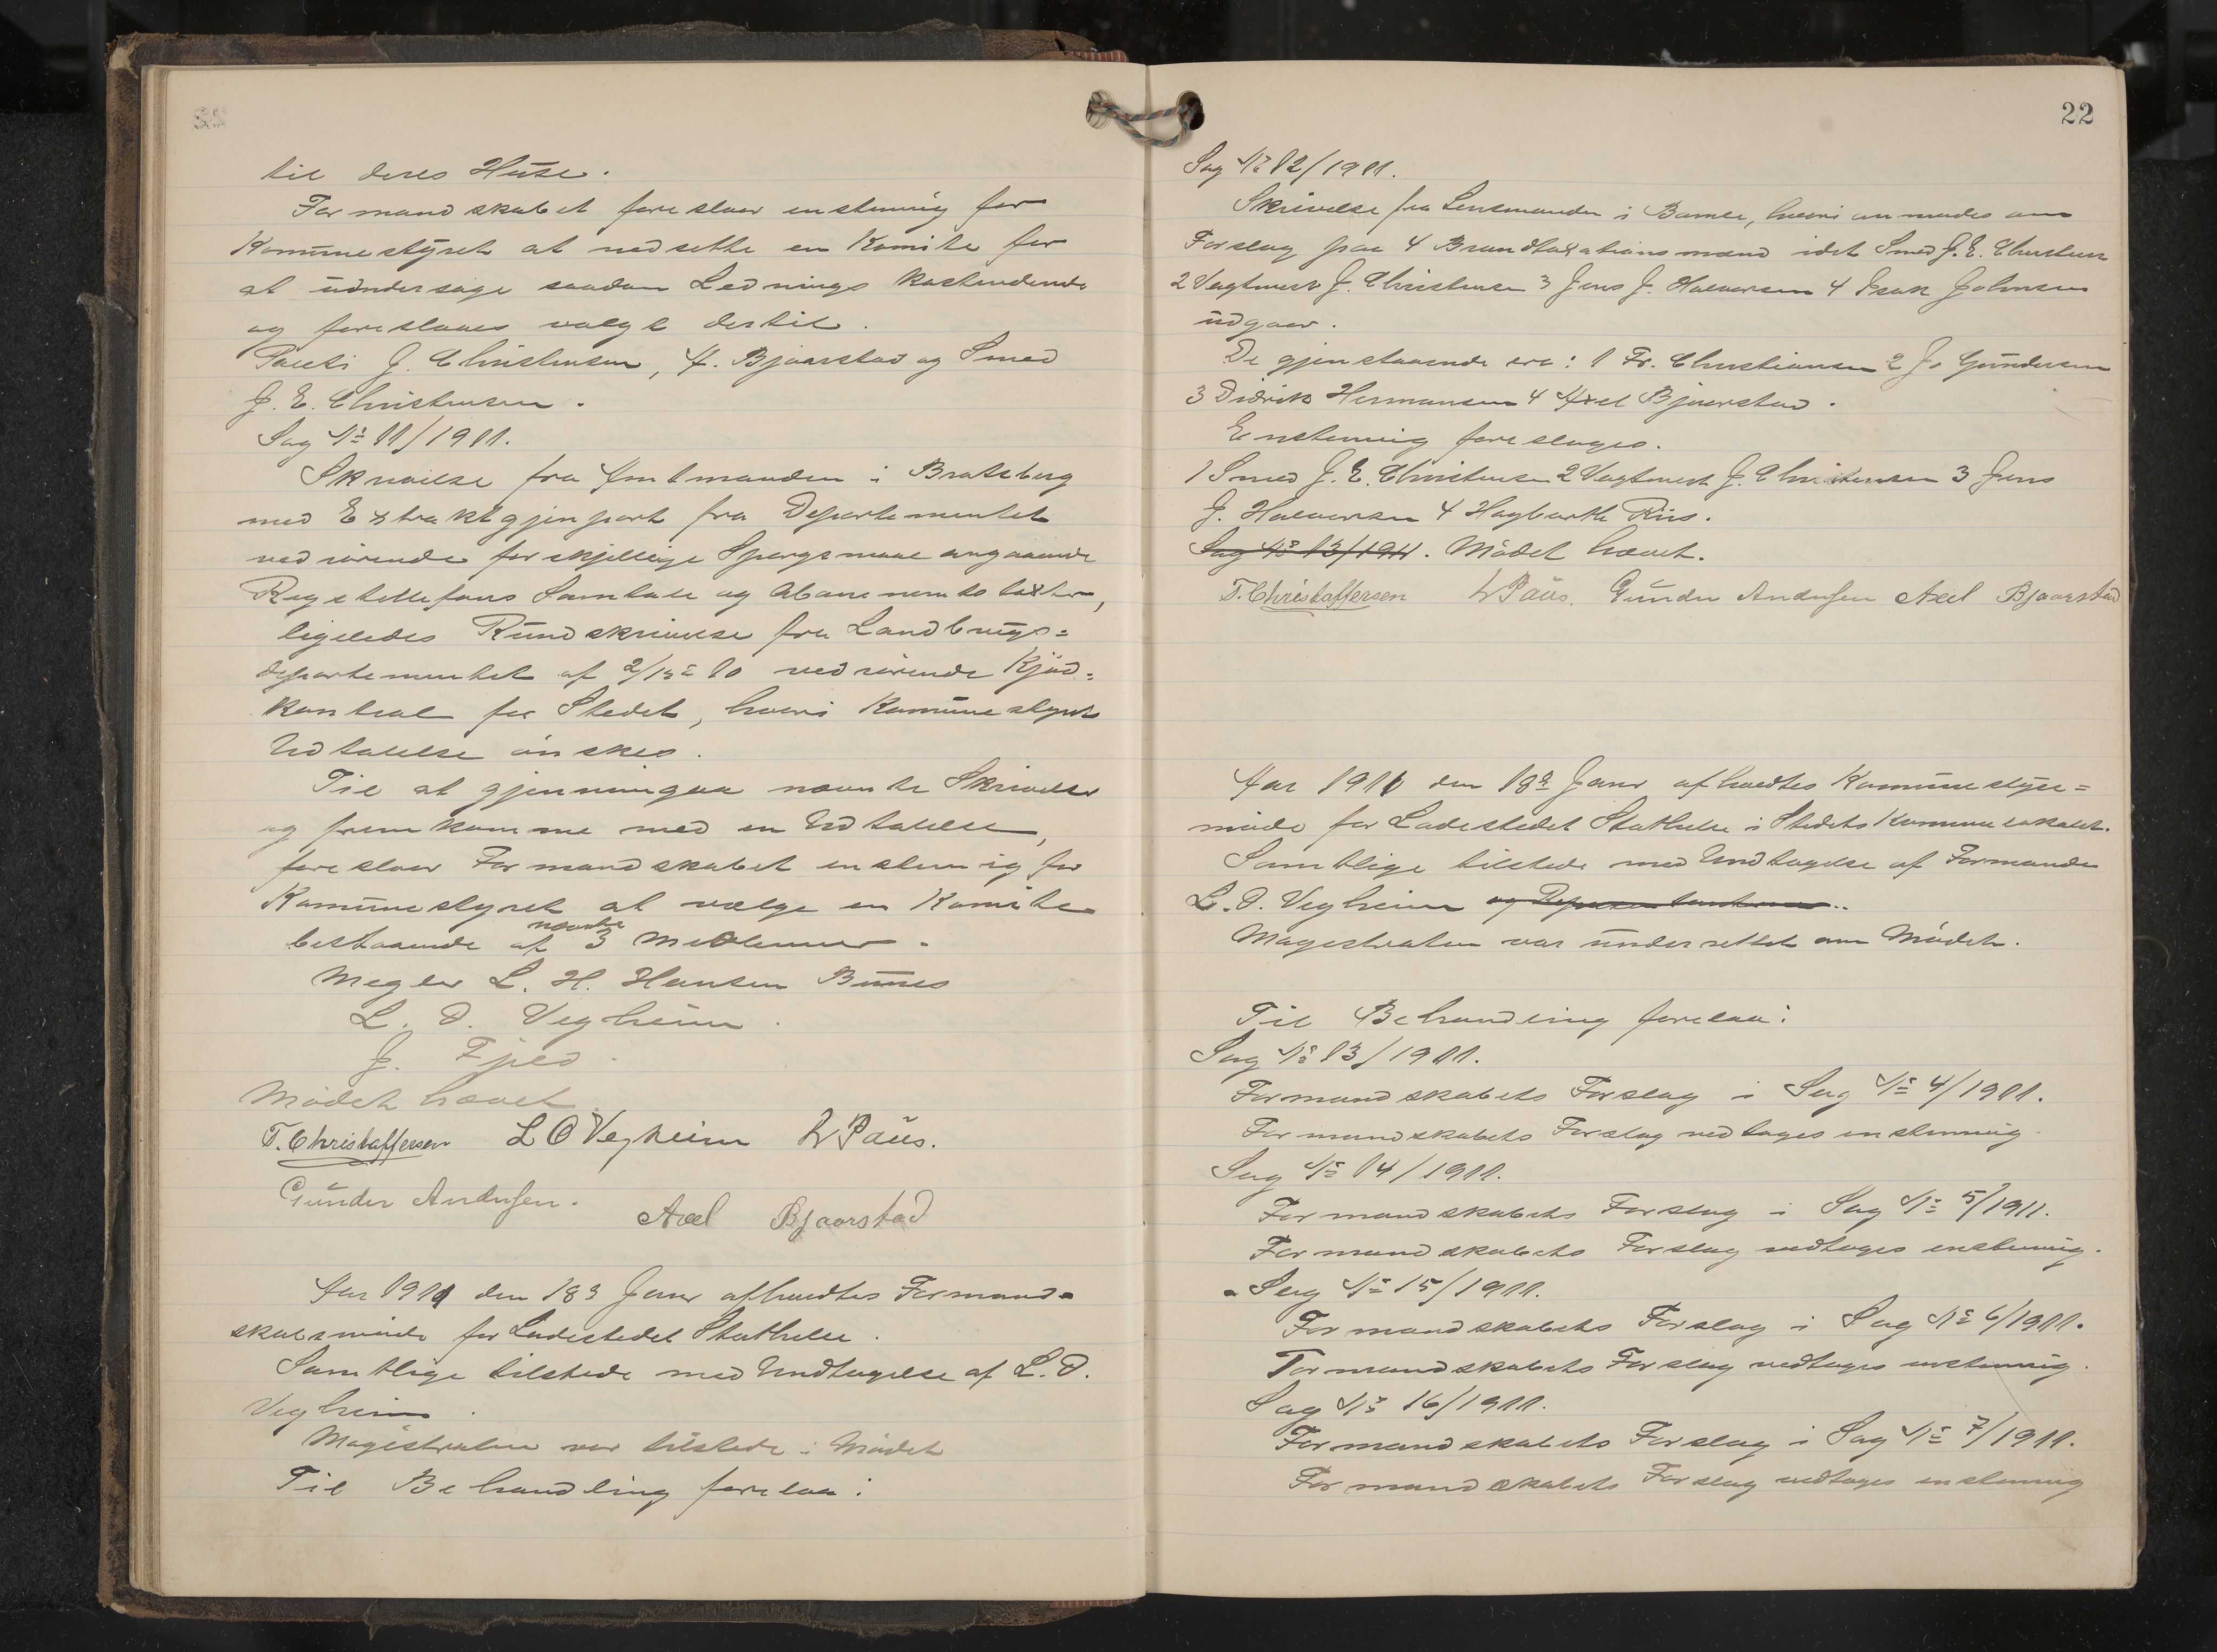 til deres Huse.
Formandskabet foreslaar enstemig for
Kommunestyret at nedsette en Komite for
at undersøge saadan Lednings Kostendende
og foreslaaes valgt dertil.
J. Christensen, A. Bjaarstad og Smed
J. E. Christensen.
Sag № 11/1911.
Skrivelse fra Amtmanden i Bratsberg
med Extraktgjenpart fra Departementet
vedrørende forskjellige Spørgsmaal angaaende
Rigstellefons Samtale og Abonnementstakster,
ligeledes Rundskrivelse fra Landbrugs=
departementet af 2/12 10 vedrørende Kjød=
kontrol for Stedet, hvori Kommunestyrets
Udtalelse ønskes.
Til at gjennemgaa nævnte Skrivelser
og fremkomme med en Udtalelse,
foreslaar Formandskabet enstemig for
Kommunestyret at vælge en Komite
nævnte
bestaaende af 3 Medlemmer.
Megler L. H. Hansen Bunes
L. O. Vegheim.
J. Fjeld.
Mødet hævet.
T. Christoffersen L O Vegheim L Paus.
Gunder Andersen. Axel Bjaarstad
Aar 1911 den 18de Janr afholdtes Formand=
skabsmøde for Ladestedet Stathelle.
Samtlige tilstede med Undtagelse af L. O.
Vegheim.
Magistraten var tilstede i Mødet
Til Behandling forelaa:
22
Sag № 12/1911.
Skrivelse fra Lensmanden i Bamle, hvori anmodes om
Forslag paa 4 Brandtaxationsmænd idet Smed J. E. Christensen
2 Vagtmest J. Christensen 3 Jens J. Halvorsen 4 Isak Johnsen
udgaar.
De gjenstaaende ere: 1 Fr. Christiansen 2 J. Gundersen
3 Didrik Hermansen 4 Axel Bjaarstad.
Enstemig foreslages.
1 Smed J. E. Christensen 2 Vagtmest J. Christensen 3 Jens
J. Halvorsen 4 Hagbarth Riis.
Sag № 13/1911. Mødet hævet.
T. Christoffersen L Paus. Gunder Andersen Axel Bjaarstad
Aar 1911 den 18de Janr afholdtes Kommunestyre=
møde for Ladestedet Stathelle i Stedets Kommunelokalet.
Samtlige tilstede med Undtagelse af Formanden
L. O. Vegheim og Repræsentanterne..
Magestraten var underrettet om Mødet.
Til Behandling forelaa:
Sag № 13/1911.
Formandskabets Forslag i Sag № 4/1911.
Formandskabets Forslag vedtages enstemmig.
Sag № 14/1911.
Formandskabets Forslag i Sag № 5/1911.
Formandskabets Forslag vedtages enstemig.
Sag № 15/1911.
Formandskabets Forslag i Sag № 6/1911.
Formandskabets Forslag vedtages enstemmig.
Sag № 16/1911.
Formandskabets Forslag i Sag № 7/1911.
Formandskabets Forslag vedtages enstemmig